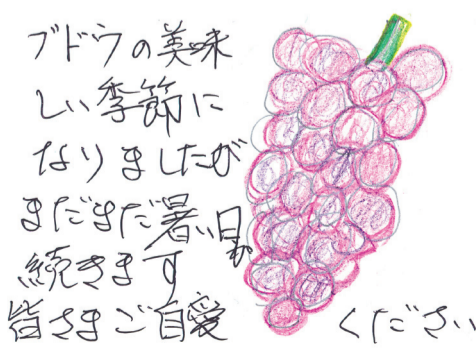 ブドウの美味
しい季節に
なりましたが
まだまだ暑い日が
続きます
皆さまご自愛 ください